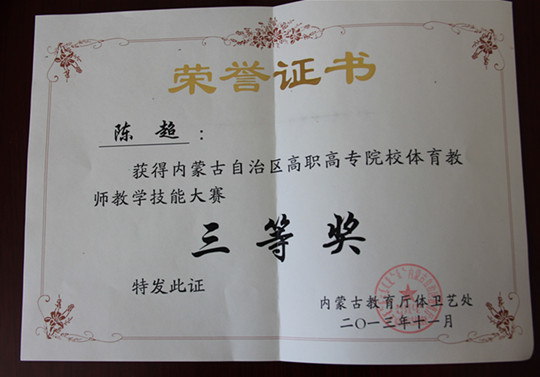 荣誉证书
陈 超：
获得内蒙古自治区高职高专院校体育教
师教学技能大赛
三等奖
特发此证
内蒙古教育厅体卫艺处
二〇一三年十一月